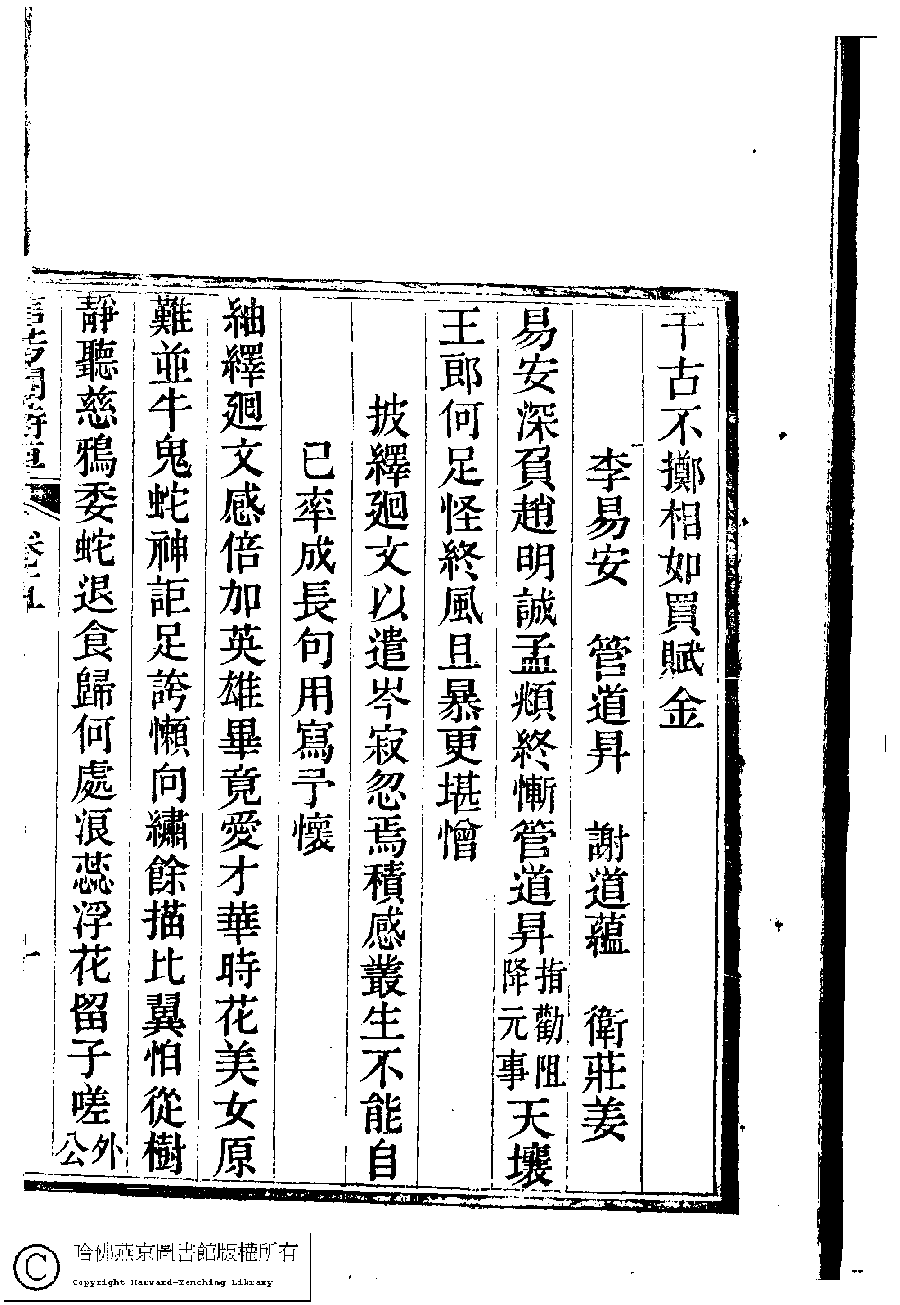 千古不擲相如買賦金
李易安　管道昇　謝道蘊　衛莊姜
易安深負趙明誠孟頫終慚管道昇指勸阻降元事天壤
王郎何足怪終風且暴更堪憎
披繹廻文以遣岑寂忽焉積感叢生不能自
已率成長句用寫予懷
紬繹廻文感倍加英雄畢竟愛才華時花美女原
難並牛鬼蛇神詎足誇懶向繡餘描比翼怕從樹
靜聽慈鴉委蛇退食歸何處浪蕊浮花留子嗟外公
哈佛燕京圖書館版權所有
Copyright Harvard-Yenching Library